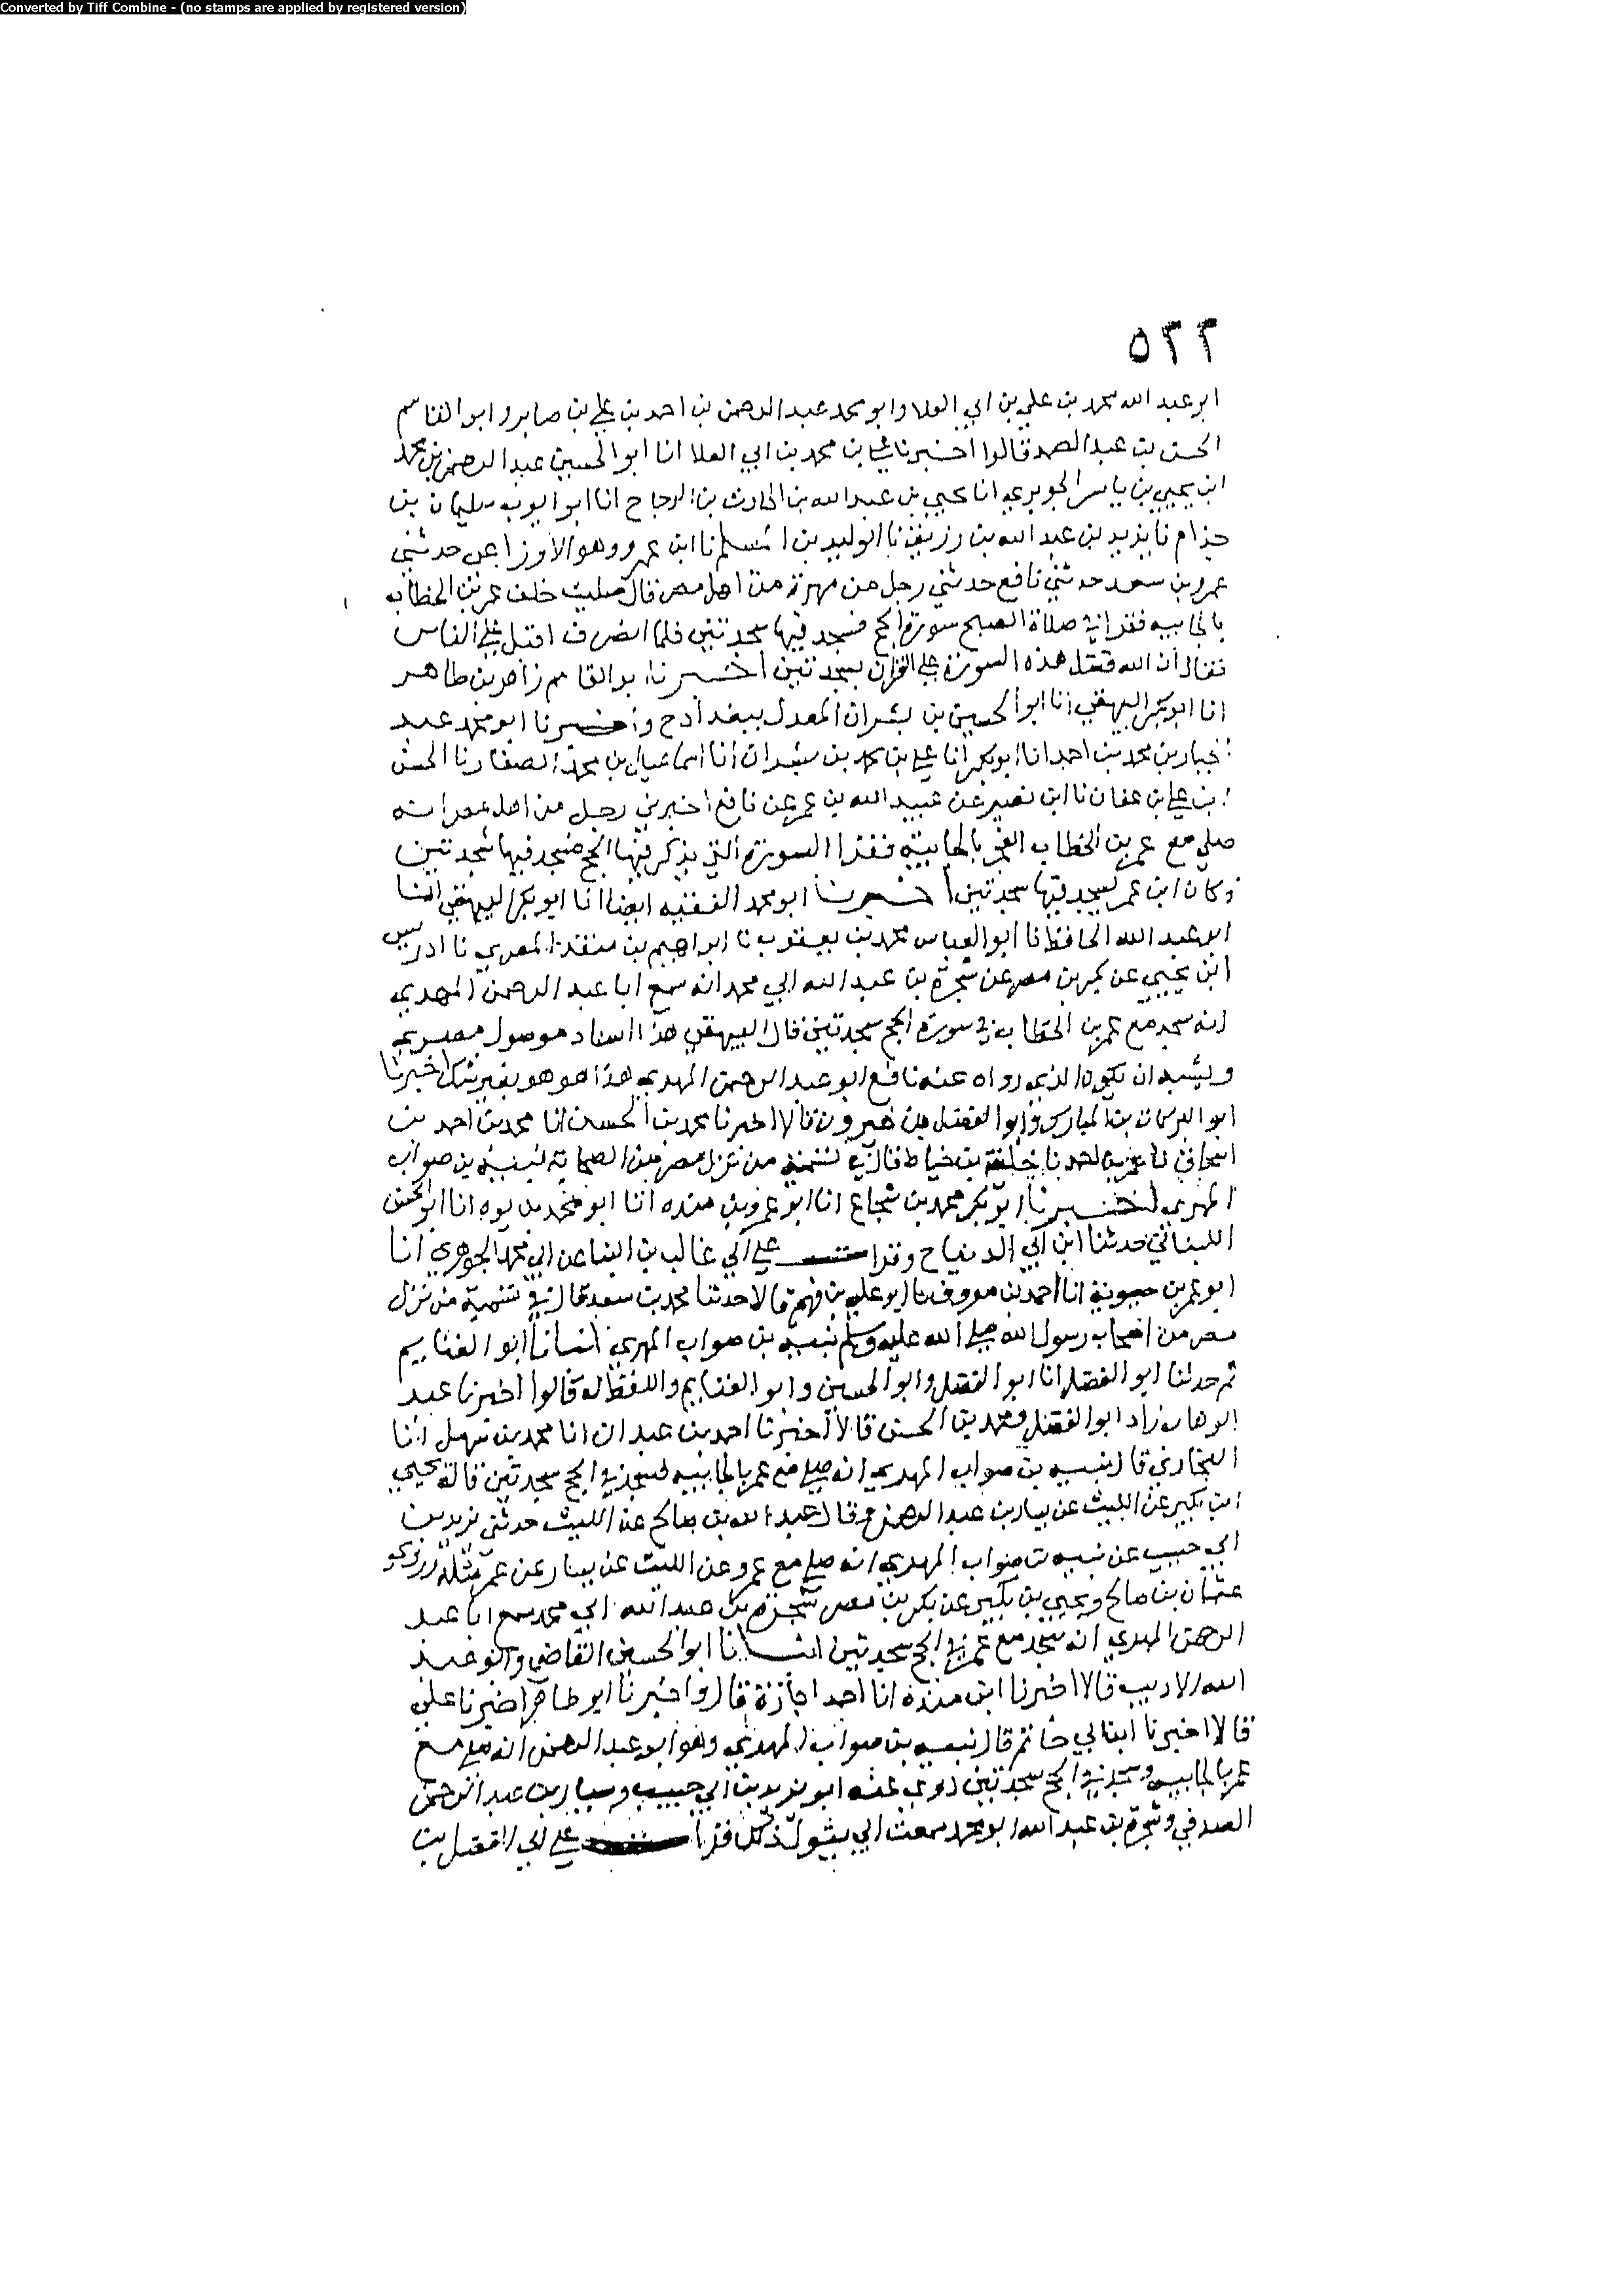 Converted by Tiff Combine - (no stamps are applied by registered version)
٥٢٢
ابو عبد الله محمد بن علي بن ابي العلا وابو محمد عبد الرحمن بن احمد بن علي بن صابر وابو القاسم
الحسن بن عبد الصمد قالوا اخبرنا علي بن محمد بن ابي العلا انا ابو الحسين عبد الرحمن بن محمد
ابن يحيى بن ياسر الجوبري انا يحيى بن عبد الله بن الحارث بن الزجاج انا ابو ايوب سليمان بن
حذام نا يزيد بن عبد الله بن رزيق نا الوليد بن مسلم نا ابن عمرو وهو الاوزاعي حدثني
عمرو بن سعد حدثني نافع حدثني رجل من مهرة من اهل مصر قال صليت خلف عمر بن الخطاب
بالجابيه فقرا في صلاة الصبح سورة الحج فسجد فيها سجدتين فلما انصرف اقبل على الناس
فقال ان الله فضل هذه السورة على القران بسجدتين اخبرنا ابو القاسم زاهر بن طاهر
انا ابو بكر البيهقي انا ابو الحسين بن بشران المعدل ببغداد ح واخبرنا ابو محمد عبد
الجبار بن محمد بن احمد انا ابو بكر انا علي بن محمد بن بشران انا اسماعيل بن محمد الصفار نا الحسن
بن علي بن عفان نا ابن نمير عن عبيد الله بن عمر عن نافع اخبرني رجل من اهل مصر انه
صلى مع عمر بن الخطاب الفجر بالجابية فقرا السورة التي يذكر فيها الحج فسجد فيها سجدتين
وكان ابن عمر يسجد فيها سجدتين اخبرنا ابو محمد الفقيه ايضا انا ابو بكر البيهقي انا
ابو عبد الله الحافظ نا ابو العباس محمد بن يعقوب نا ابراهيم بن منقذ المصري نا ادريس
ابن يحيى عن بكر بن مضر عن شجرة بن عبد الله ابي محمد انه سمع ابا عبد الرحمن المهدي
انه سجد مع عمر بن الخطاب في سورة الحج سجدتين قال البيهقي هذا اسناد موصول مصري
ويشبه ان يكون الذي رواه عنه نافع ابو عبد الرحمن المهدي هذا هو هو بغير شك اخبرنا
ابو البركات بن المبارك وابو الفضل بن خيرون قالا اخبرنا محمد بن الحسن انا محمد بن احمد بن
اسحاق نا عمر بن احمد نا خليفة بن خياط قال في تسمية من نزل مصر من الصحابة نبيه بن صواب
المهري اخبرنا ابو بكر محمد بن شجاع انا ابو عمرو بن منده انا ابو محمد بن يوه انا ابو الحسن
اللنباني حدثنا ابن ابي الدنيا ح وقرا علي ابي غالب بن البنا عن ابي محمد الجوهري انا
ابو عمر بن حيوية انا احمد بن معروف نا ابو علي بن فهم قالا حدثنا محمد بن سعد قال في تسمية من نزل
مصر من اصحاب رسول الله صلى الله عليه وسلم نبيه بن صواب المهري انبانا ابو الغنايم
ثم حدثنا ابو الفضل انا ابو الفضل وابو الحسين وابو الغنايم واللفظ له قالوا اخبرنا عبد
الوهاب زاد ابو الفضل ومحمد بن الحسن قالا اخبرنا احمد بن عبدان انا محمد بن سهل انا
البخاري قال نبيه بن صواب المهدي انه صلى مع عمر بالجابيه فسجد في الحج سجدتين قاله يحيى
ابن بكير عن الليث عن يسار بن عبد الرحمن وقال عبد الله بن صالح عن الليث حدثني يزيد بن
ابي حبيب عن نبيه بن صواب المهدي انه صلى مع عمر وعن الليث عن يسار عن عمر مثله
عثمان بن صالح ويحيى بن بكير عن بكر بن مضر شجرة بن عبد الله ابي محمد سمع ابا عبد
الرحمن المهدي انه سجد مع عمر في الحج سجدتين انبانا ابو الحسين القاضي وابو عبد
الله الاديب قالا اخبرنا ابن منده انا احمد اجازة قال واخبرنا ابو طاهر اخبرنا علي
قالا اخبرنا ابن ابي حاتم قال نبيه بن صواب المهدي وهو ابو عبد الرحمن انه صلى مع
عمر بالجابيه وسجد في الحج سجدتين روى عنه ابو يزيد بن ابي حبيب وسيار بن عبد الرحمن
الصدفي وشجرة بن عبد الله ابو محمد سمعت ابي يقول ذلك قرا علي ابي الفضل بن